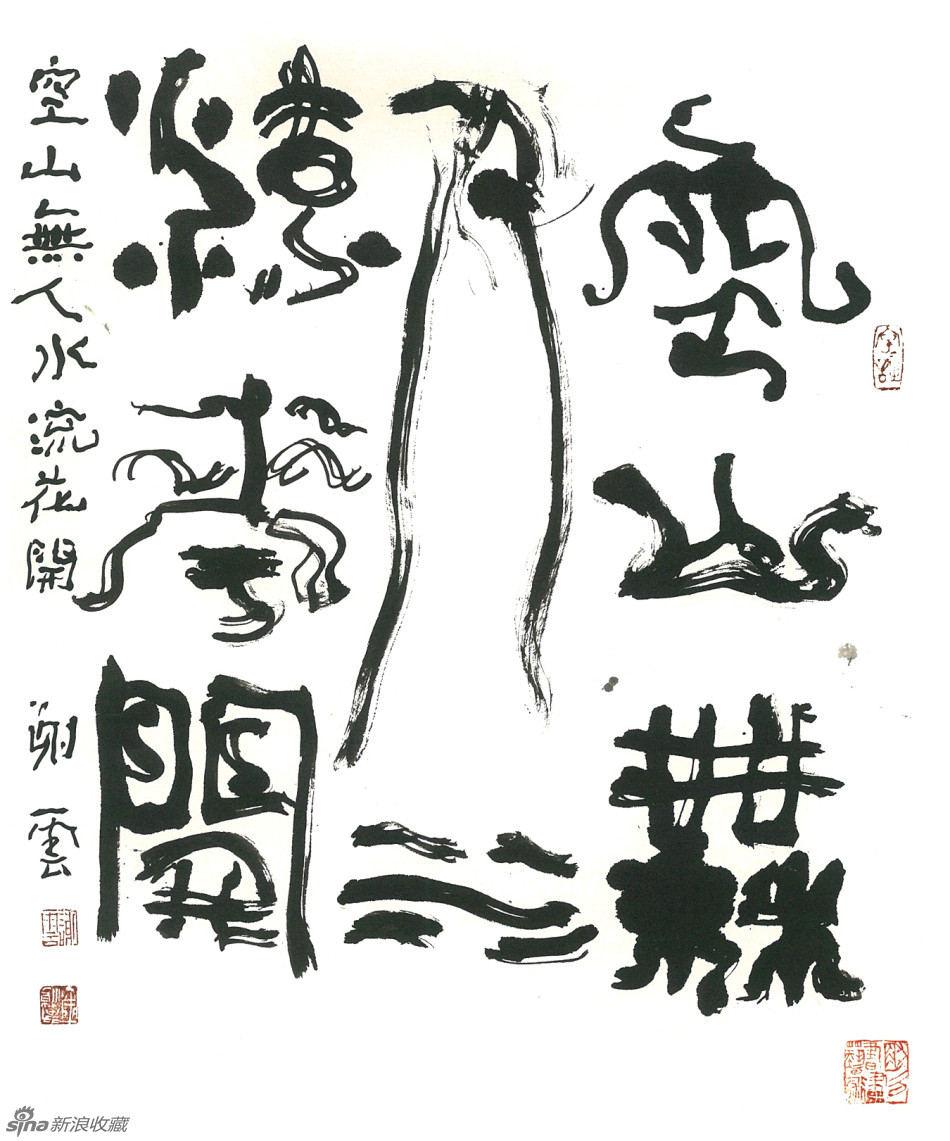 空山無
人水
流花開
空山無人水流花開
謝雲
sina新浪收藏